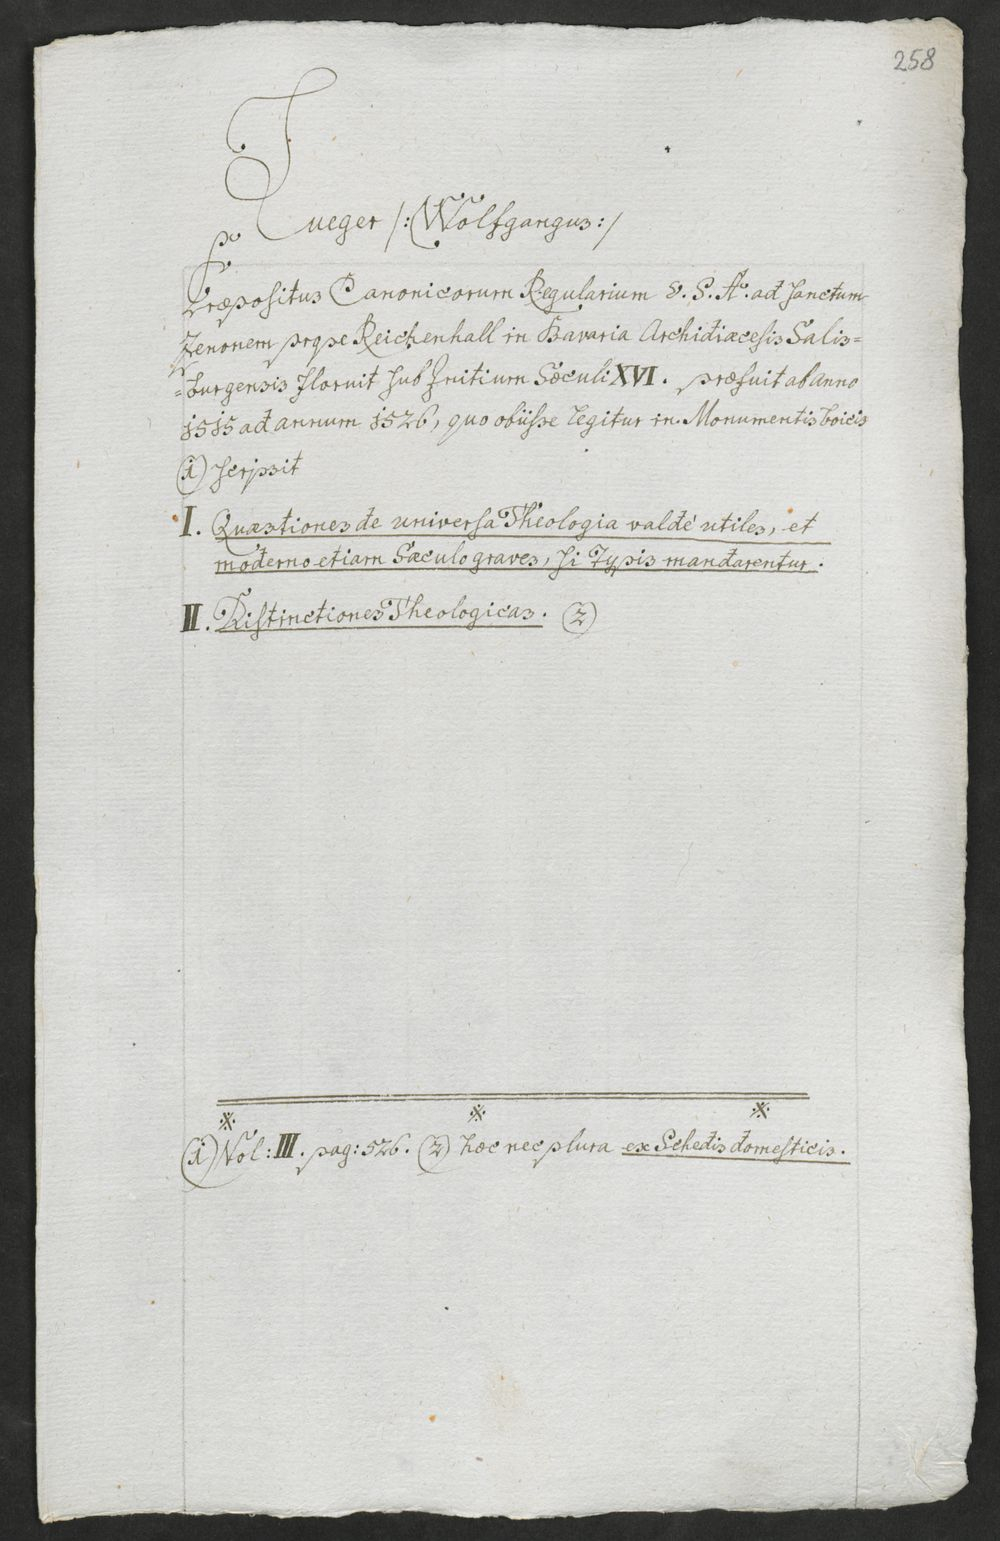 258
Tueger /: Wolfgangus :/
Præpositus Canonicorum Regularium S. P. A. ad Sanctum
Zenonem prope Reichenhall in Bavaria Archidiæcesis Salis=
=burgensis floruit sub Initium Sæculi XVI. præfuit ab anno
1515 ad annum 1526, quo obiisse legitur in Monumentis boicis
(1) scripsit
I. Quæstiones de universa Theologia valdé utiles, et
moderno etiam Sæculo graves, si Typis mandarentur.
II. Distinctiones Theologicas. (2)
(1) Vol: III. pag: 526. (2) hæc nec plura ex Schedis domesticis.